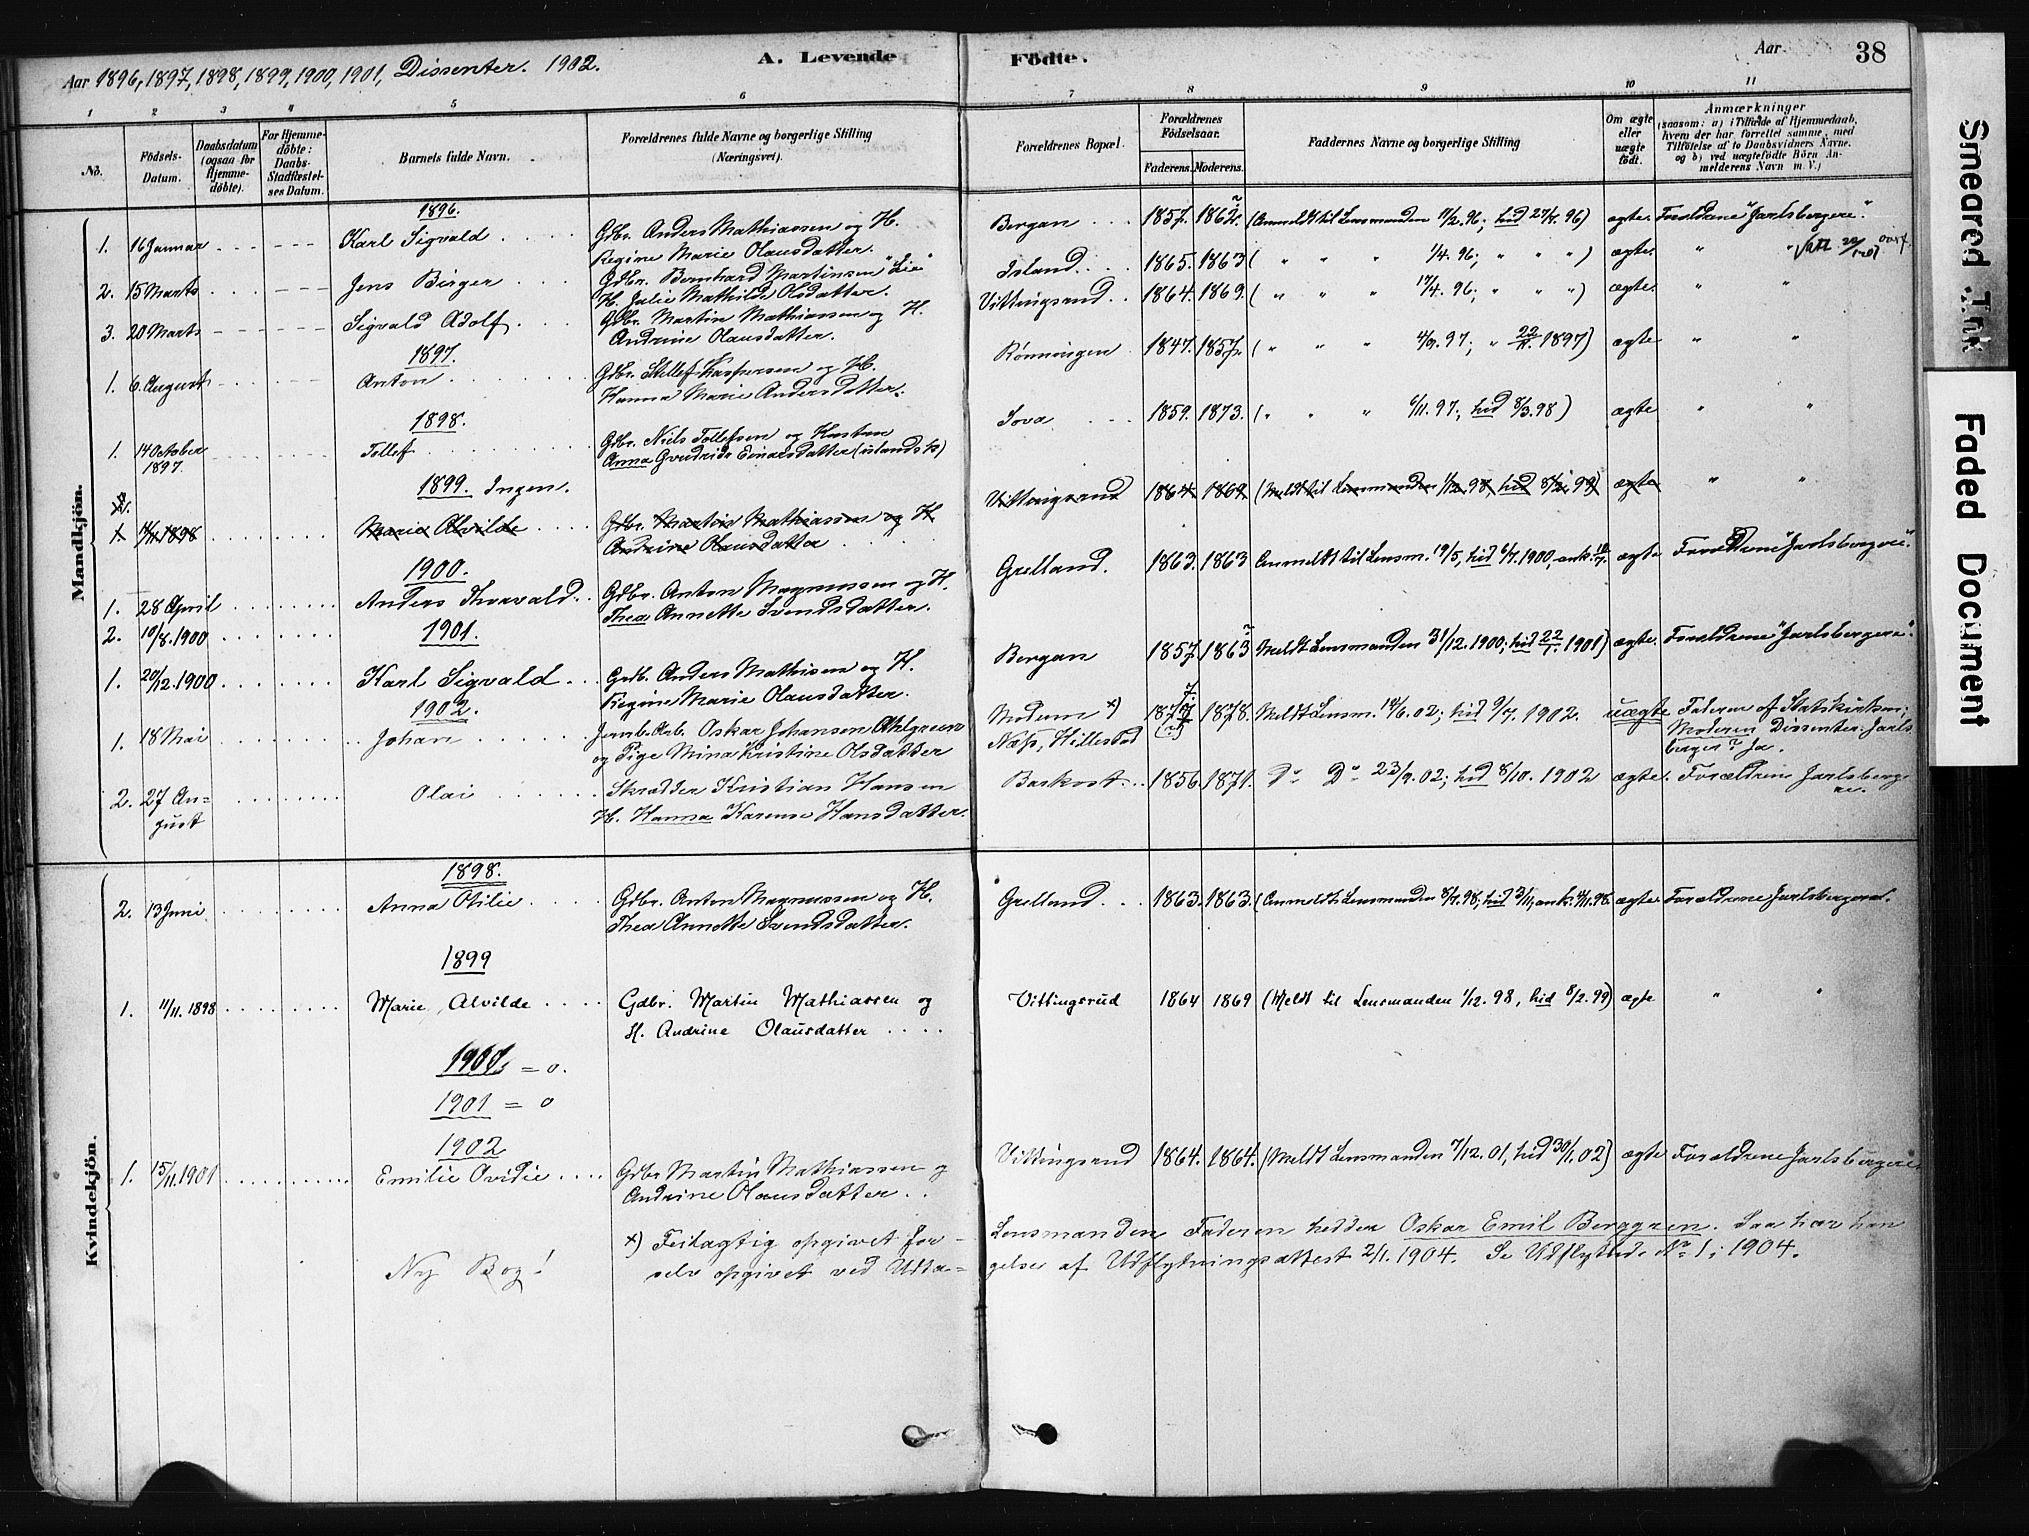 Aar 1896, 1897, 1898, 1899, 1900, 1901, Dissenter. 1902.
A. Levende Födte.
Aar 38
1 2 3 4 5 6 7 8 9 10 11
No.
Födsels-Datum.
Daabsdatum (ogsaa for Hjemmedöbte).
For Hjemmedöbte: Daabs-Stadfæstelses Datum.
Barnets fulde Navn.
Forældrenes fulde Navne og borgerlige Stilling (Næringsvei).
Forældrenes Bopæl.
Forældrenes Födselsaar.
Faderens. Moderens.
Faddernes Navne og borgerlige Stilling
Om ægte eller uægte födt.
Anmærkninger (saasom: a) i Tilfælde af Hjemmedaab, hvem der har forrettet samme, med Tilföielse af to Daabsvidners Navne, og b) ved uægtefödte Börn Anmelderens Navn m. V.)
Mandkjön.
1896.
1. 16 Januar Karl Sigvald Gdbr. Anders Mathiassen og H. Bergan 1857. 1862. (Anmeldt til Lensmanden 17/2. 96; hid 27/7. 96) ægte. Forældrene "Jarlsbergere".
Regine Marie Olausdatter.
2. 15 Marts Jens Birger Gdbr. Bernhard Martinsen "Lie" Island 1865. 1863 ( " " " 1/4. 96; " " " ) ægte. " "
H. Julie Mathilde Olsdatter.
3. 20 Marts Sigvald Adolf Gdbr. Martin Mathiassen og H. Vittingsrud 1864. 1869. ( " " " 17/4. 96; " " " ) ægte. " "
Andrine Olausdatter.
1897.
1. 6. August Anton Gdbr. Stellef Kaspersen og H. Rønningen 1847. 1857. ( " " " 4/9. 97; " 22/11. 1897) ægte " "
Hanna Marie Andersdatter.
1898.
1. 14 October 1897 Tollef Gdbr. Niels Tollefsen og Hustru Sova 1859. 1873. ( " " " 6/11. 97; hid 8/3. 98) ægte " "
Anna Gvudride Einarsdatter (islandsk)
1899. Ingen.
1. 11/11. 1898 Marie Alvilde Gdbr. Martin Mathiassen og H Vittingsrud 1864 1869. (Meldt til Lensmanden 1/12. 98, hid 8/2. 99) ægte " "
Andrine Olausdatter
1900.
1. 28 April Anders Thorvald Gdbr. Anton Magnussen og H. Grelland. 1863. 1863 Anmeldt til Lensm. 19/5, hid 6/7. 1900, ank. 10/7. ægte Forældrene "Jarlsbergere".
Thea Annette Svendsdatter.
2. 10/8. 1900
1901.
1. 20/12. 1900 Karl Sigvald Grdb. Anders Mathisen og H. Bergan 1857. 1863 Meldt Lensmanden 31/12. 1900; hid 22/1. 1901) ægte. Forældrene "Jarlsbergere".
Regine Marie Olausdatter.
1902.
1. 18 Mai Johan Jernb. Arb. Oskar Johansen Ahlgreen Modum x) 1878. Meldt Lensm. 14/6. 02; hid 9/7. 1902. uægte Faderen af Statskirken;
og Pige Mina Kristine Olsdatter Næs, Hillestad Moderen Dissenter. Jarlsberger? Ja.
2. 27 August Olai Skrædder Kristian Hansen Barkost 1856. 1871. Do Do 23/9. 02; hid 8/10. 1902 ægte. Forældrene Jarlsbergere.
H. Hanna Karense Hansdatter.
Kvindekjön.
1898.
2. 13 Juni Anna Otilie Gdbr. Anton Magnussen og H. Grelland 1863. 1863. (Anmeldt Lensmanden 8/7. 98; hid 3/11, ank. 4/11. 98. ægte Forældrene Jarlsbergere.
Thea Annette Svendsdatter.
1899
1. 11/11. 1898 Marie Alvilde Gdbr. Martin Mathiassen og Vittingsrud 1864 1869 (Meldt til Lensmanden 1/12. 98, hid 8/2. 99) ægte " "
H. Andrine Olausdatter
1900 = 0.
1901 = 0
1902
1. 15/11. 1901 Emilie Ovidie Gdbr Martin Mathiassen og Vittingsrud 1864. 1864. (Meldt Lensmanden 7/12. 01, hid 30/1. 02) ægte Forældrene Jarlsbergere
Andrine Olausdatter
x) Feilagtig opgivet for Lensmanden Faderen hedder Oskar Emil Berggren. Saa har han
Ny Bog! selv opgivet ved Udtagelse af Udflytningsattest 2/1. 1904. Se Udflyttede No 1 i 1904.
Smeared Ink
Faded Document